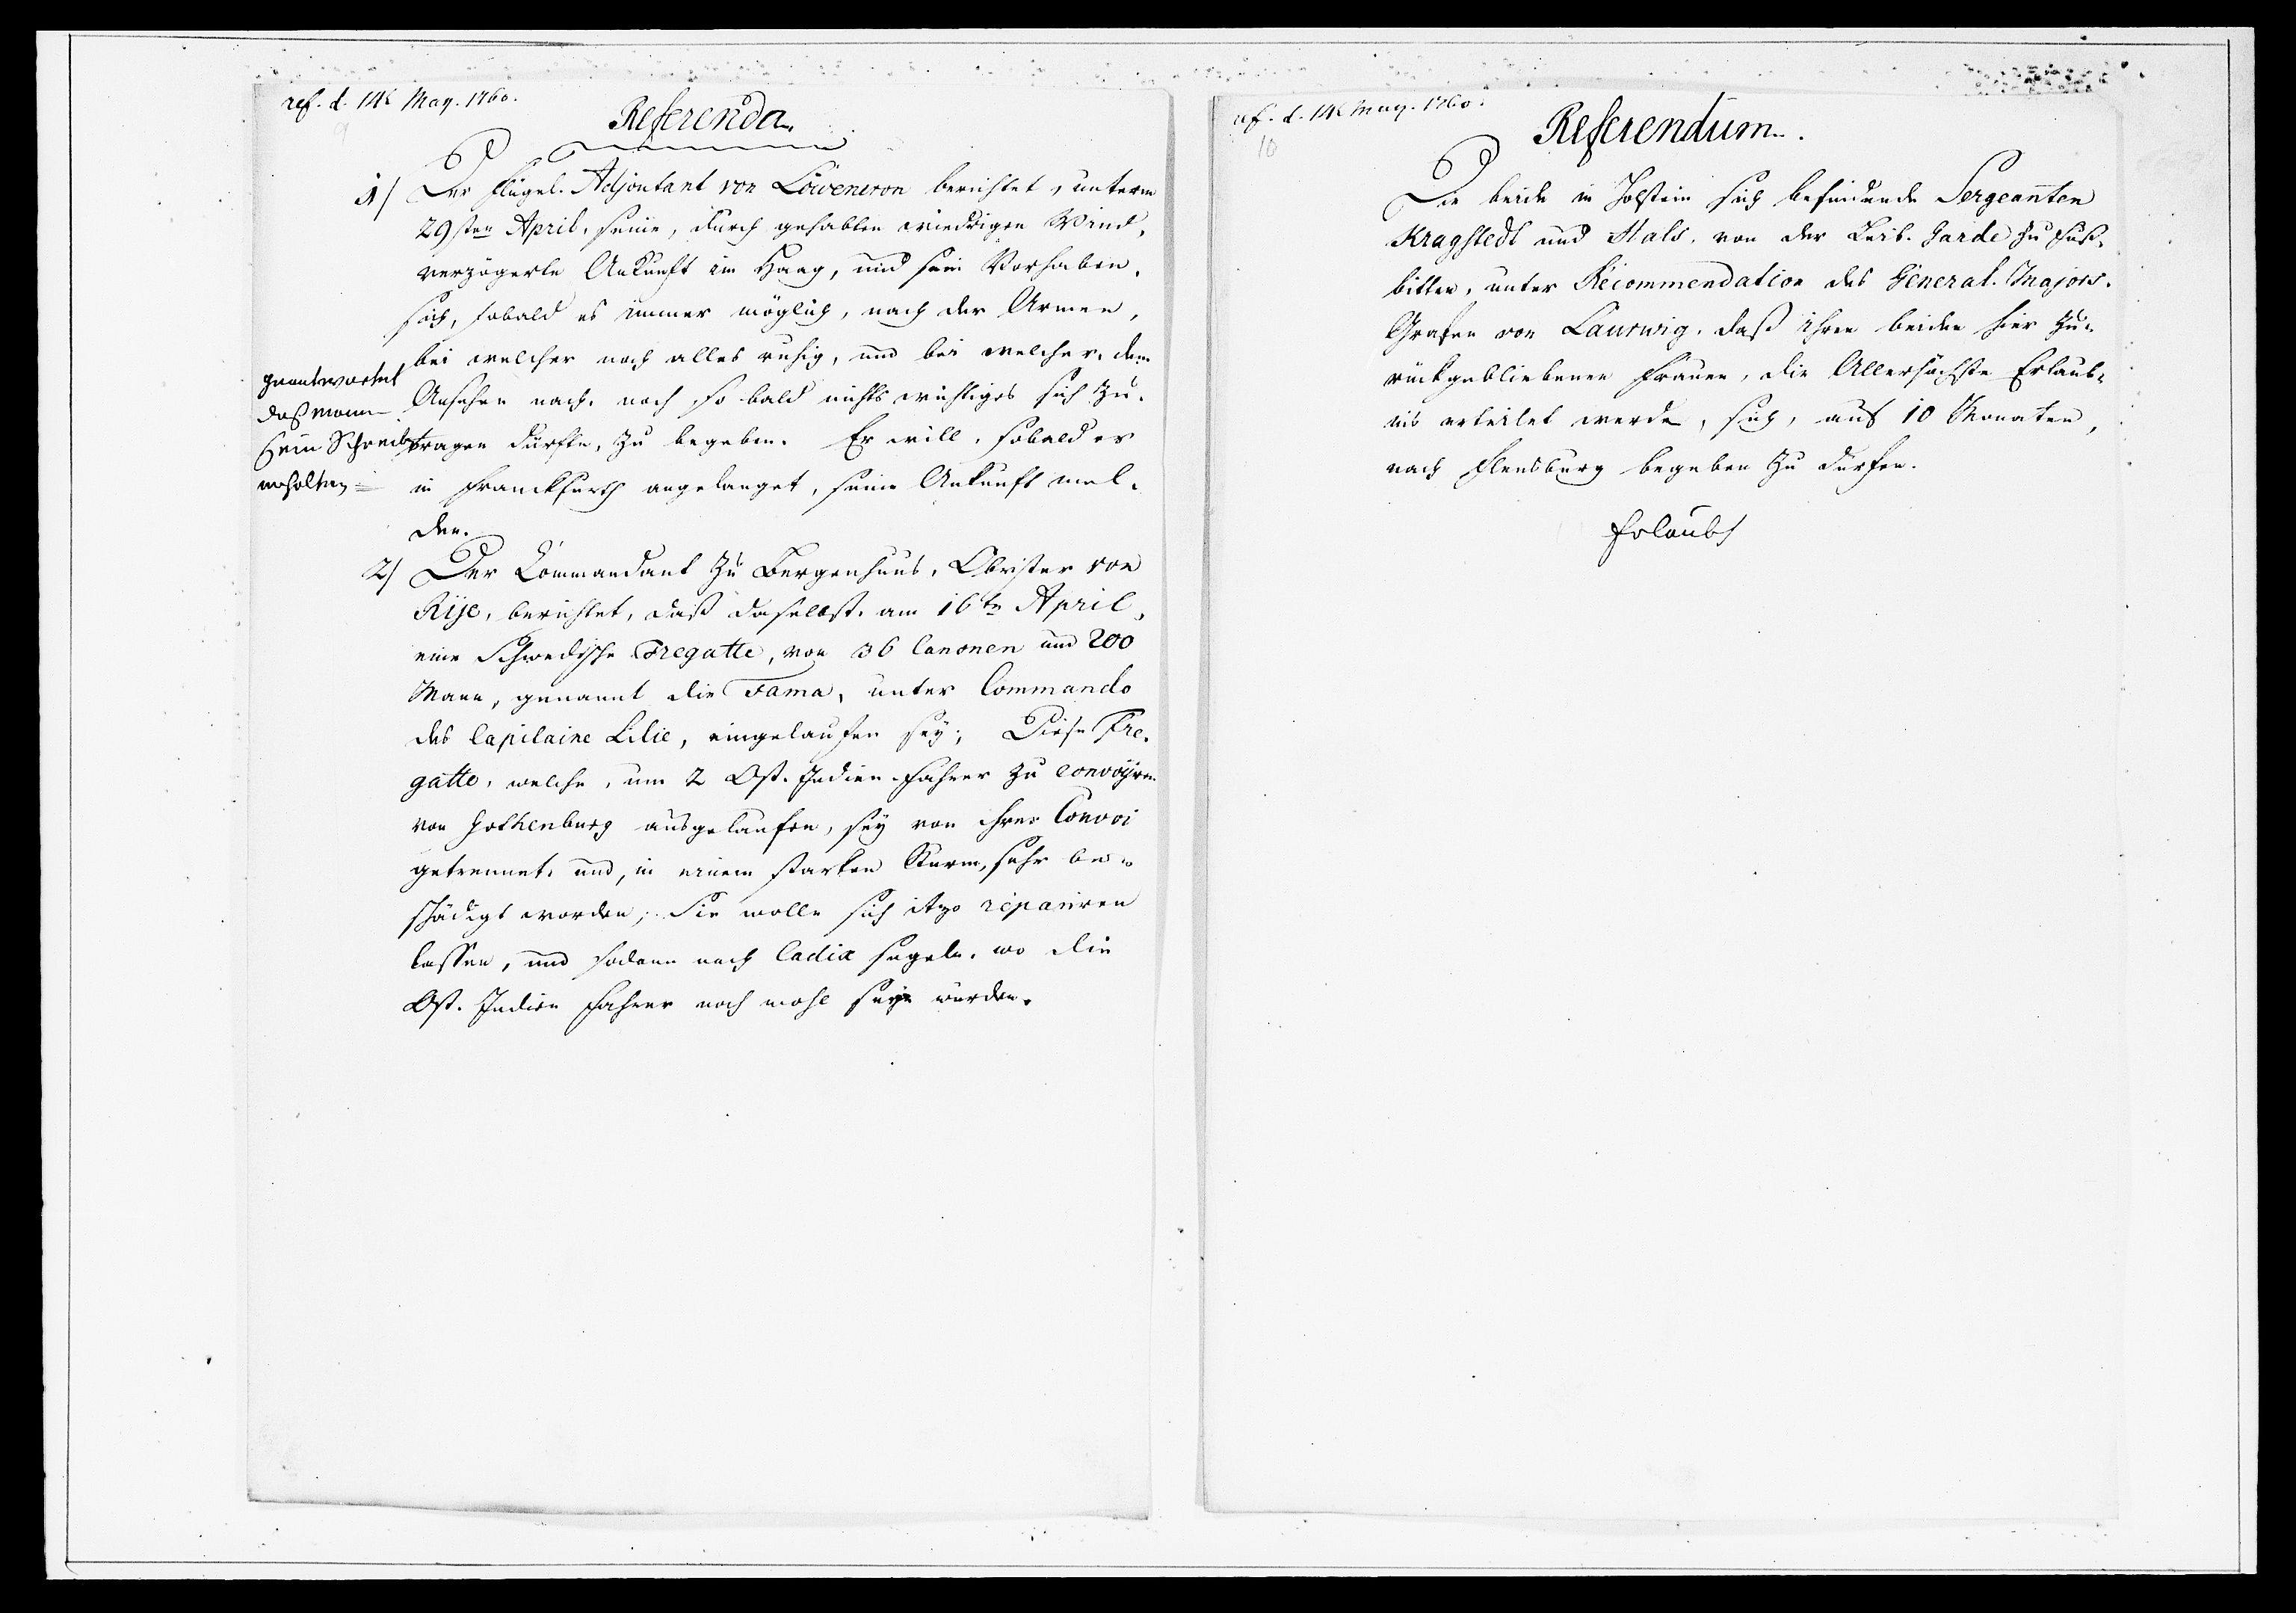 ref. d. 14t May. 1760.
9
Referenda.
1/ Der Flügel. Adjoutant von Löwencron berichtet, unterm
29sten April, seine, durch gehabten wiedrigen Wind,
verzögerte Ankunft im Haag, und sein Vorhaben,
sich, sobald es immer möglich, nach der Armee,
bei welcher noch alles ruhig, und bei welcher, dem
Ansehen nach, noch so bald nichts wichtiges sich zu-
tragen dürfte, zu begeben. Er will, sobald er
in Franckfurth angelanget, seine Ankunft mel-
den.
geantwortet
daß man
sein Schreiben
erhalten
2/ Der Commandant zu Bergenhuus, Obrister von
Rije, berichtet, daß daselbst, am 16tn April,
eine Schwedische Fregatte, von 36 Canonen und 200
Mann, genannt die Fama, unter Commando
des Capitaine Lilie, eingelaufen sey; Diese Fre-
gatte, welche, um 2 Ost-Indien-Fahrer zu convoyren
von Gothenburg ausgelaufen, sey von ihrer Convoi
getrennet, und, in einem starken Sturm, sehr be-
schädigt worden; Sie wolle sich itzo repariren
lassen, und sodann nach Cadix segeln, wo die
Ost-Indien Fahrer noch wohl seyn würden.
ref. d. 14t May. 1760.
10
Referendum.
Die beide in Holstein sich befindende Sergeannten
Kragstedt und Hals, von der Leib-Garde zu Fuß,
bitten, unter Recommendation des General-Majors,
Grafen von Laurwig, daß ihren beiden hier zu-
rückgebliebenen Frauen, die Allerhöchste Erlaub-
nis erteilet werde, sich, auf 10 Monaten,
nach Flensburg begeben zu dürfen.
Erlaubt